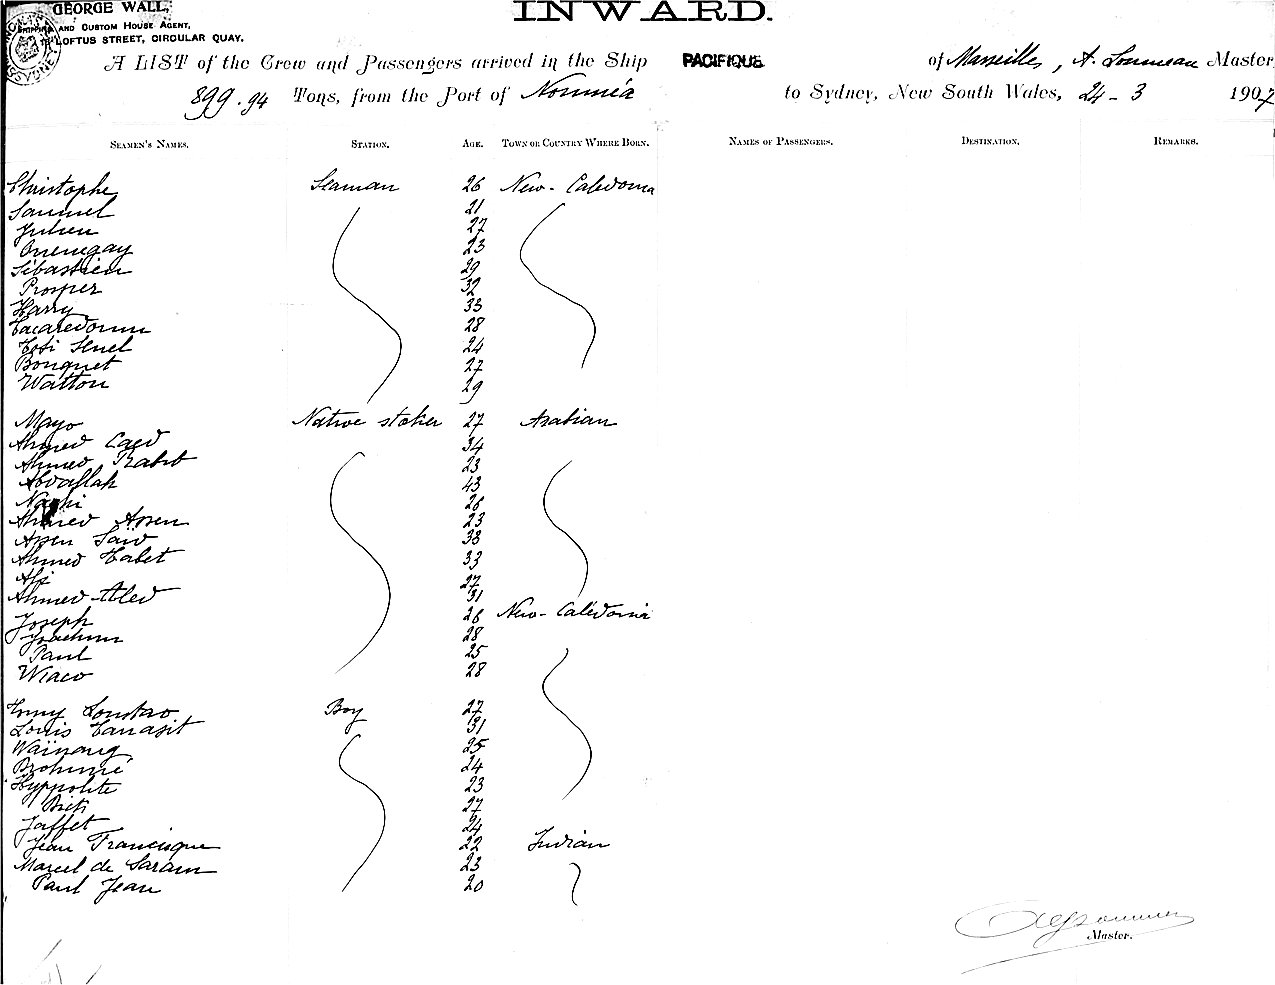 GEORGE WALL,
SHIPPING AND CUSTOM HOUSE AGENT,
LOFTUS STREET, CIRCULAR QUAY.
INWARD.
A LIST of the Crew and Passengers arrived in the Ship PACIFIQUE of Marseilles, A. Master
899.94 Tons, from the Port of Nouméa to Sydney, New South Wales, 24-3 1907
SEAMEN'S NAMES. STATION. AGE. TOWN OR COUNTRY WHERE BORN. NAMES OF PASSENGERS. DESTINATION. REMARKS.
Christophe Seaman 26 New-Caledonia
Samuel 21
Julien 27
23
Sébastien 29
Prosper 32
Harry 33
28
24
Bouquet 27
Watton 29
Mayo Native stoker 27 Arabian
Ahmed Caed 34
Ahmed 23
Abdallah 43
26
Ahmed Assen 23
Assen Saïd 38
Ahmed Tabet 33
27
Ahmed Aled 31
Joseph 26 New-Calédonia
Joachim 28
Paul 25
Wiaco 28
Boy 27
Louis 31
25
24
Hyppolite 23
27
Jaffet 24
Jean Francisque 22 Indian
Marcel de Saram 23
Paul Jean 20
Master.